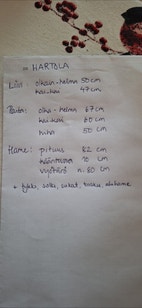 HARTOLA
Liivi: olkain - helma 50 cm
kai - kai 47 cm
Paita: olka - helma 67 cm
kai - kai 60 cm
hiha 50 cm
Hame: pituus 82 cm
käänövara 10 cm
vyötärö n. 80 cm
+ tykki, solki, sukat, tasku, alihame